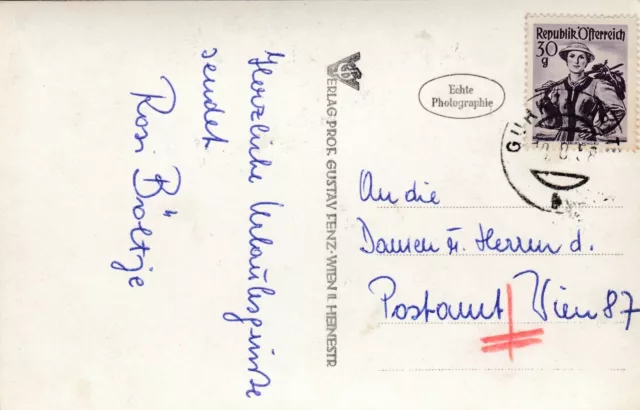 Herzliche Urlaubsgrüsse
sendet
Rosi Böltje
VERLAG PROF. GUSTAV FENZ · WIEN II. HEINESTR
Echte
Photographie
Republik Österreich
30
g
An die
Damen u. Herren d.
Postamt Wien 87